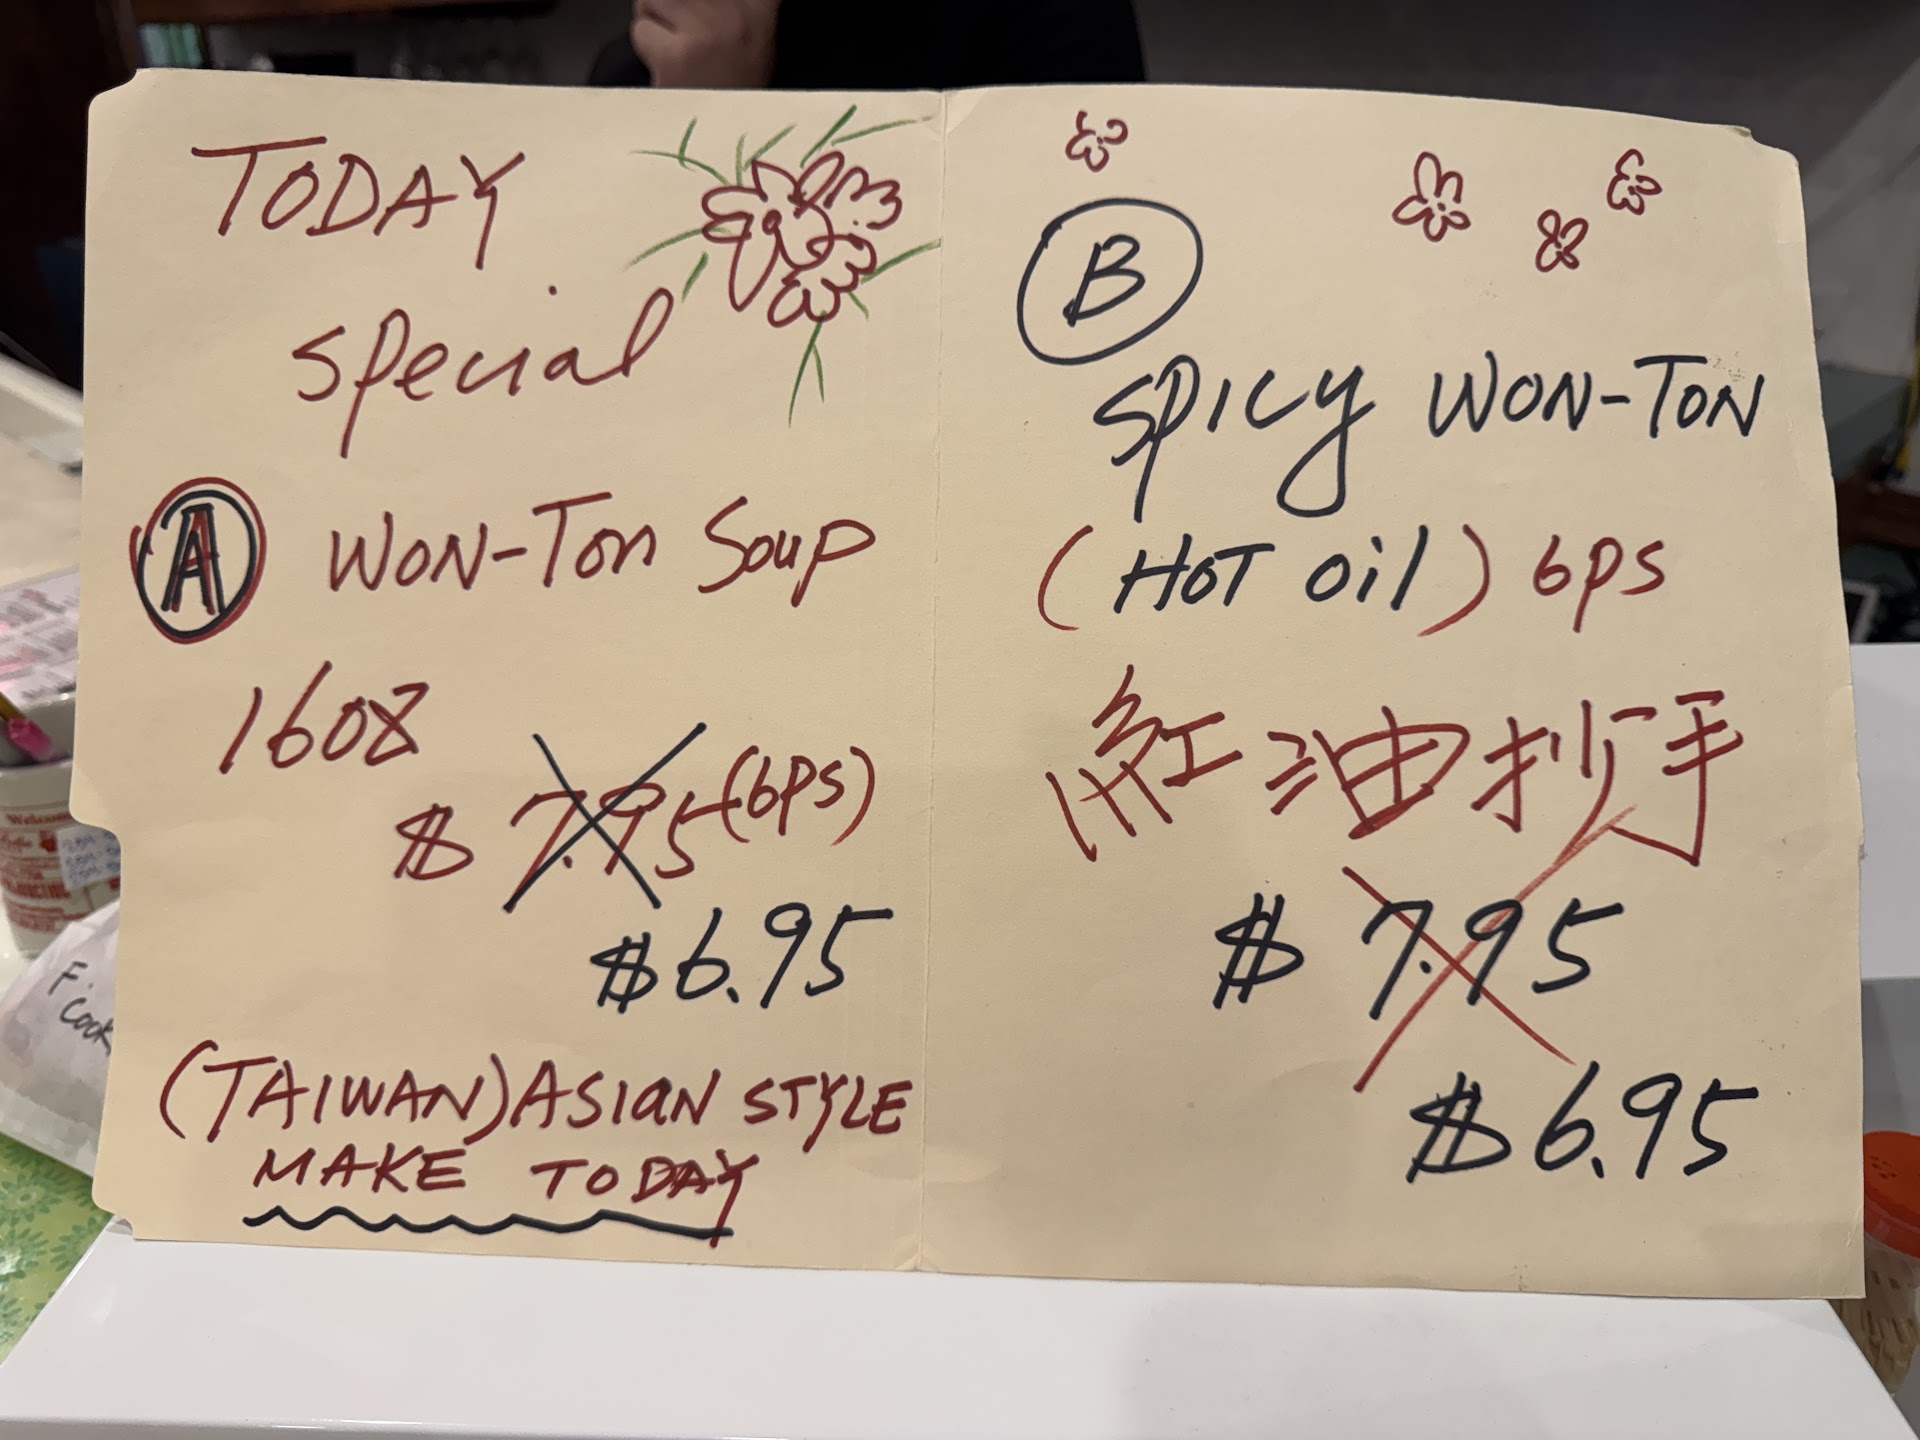 TODAY
special
A WON-TON Soup
160Z
$ 7.95 (6PS)
$6.95
(TAIWAN) ASIAN STYLE
MAKE TODAY
B
SPICY WON-TON
(HOT Oil) 6PS
紅油抄手
$ 7.95
$6.95
Welcome
F.
Cook